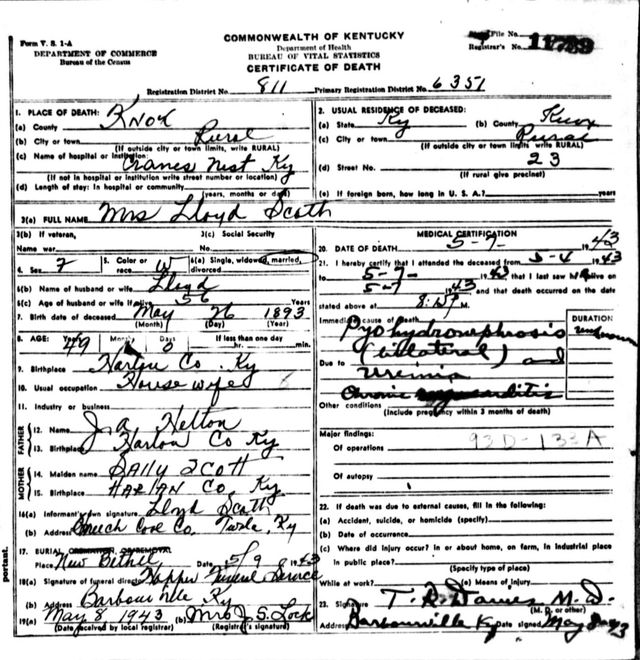 Form V. S. 1-A
DEPARTMENT OF COMMERCE
Bureau of the Census
COMMONWEALTH OF KENTUCKY
Department of Health
BUREAU OF VITAL STATISTICS
CERTIFICATE OF DEATH
File No.
Registrar's No.
Registration District No. 811 Primary Registration District No. 6351
1. PLACE OF DEATH:
(a) County Knox
(b) City or town Rural
(If outside city or town limits, write RURAL)
(c) Name of hospital or institution: Cranes Nest Ky
(If not in hospital or institution write street number or location)
(d) Length of stay: In hospital or community
(years, months or days)
2. USUAL RESIDENCE OF DECEASED:
(a) State Ky (b) County Knox
(c) City or town Rural
(If outside city or town limits, write RURAL)
(d) Street No. 23
(If rural give precinct)
(e) If foreign born, how long in U. S. A.? years
3(a) FULL NAME Mrs Lloyd Scoth
3(b) If veteran,
Name war
3(c) Social Security
No.
4. Sex F 5. Color or race W 6(a) Single, widowed, married, divorced
6(b) Name of husband or wife Lloyd
6(c) Age of husband or wife if alive 56 Years
7. Birth date of deceased May 26 1893
(Month) (Day) (Year)
8. AGE: Years 49 Months Days If less than one day
hr. min.
9. Birthplace Harlan Co. Ky
10. Usual occupation House wife
11. Industry or business
FATHER
12. Name J. A. Helton
13. Birthplace Harlan Co Ky
MOTHER
14. Maiden name SAlly Scott
15. Birthplace HARlAN Co. Ky
16(a) Informant's own signature Lloyd Scoth
(b) Address Ky
17. BURIAL, CREMATION, OR REMOVAL
Place New Bethel Date 5/9 1943
18(a) Signature of funeral director Hopper Funeral Service
(b) Address Barbourville Ky
19(a) May 8 1943 (b) Mrs J. S. Lock
(Date received by local registrar) (Registrar's signature)
MEDICAL CERTIFICATION
20. DATE OF DEATH 5-7- 1943
21. I hereby certify that I attended the deceased from 5-4 1943
to 5-7- 1943 that I last saw h alive on
5-7 1943 and that death occurred on the date
stated above at
Immediate cause of death DURATION
Pyohydronephrosis unknown
(bilateral) and
Due to uremia
Chronic
Other conditions
(Include pregnancy within 3 months of death)
Major findings:
Of operations
Of autopsy
22. If death was due to external causes, fill in the following:
(a) Accident, suicide, or homicide (specify)
(b) Date of occurrence
(c) Where did injury occur? in or about home, on farm, in industrial place
in public place?
(Specify type of place)
While at work? (e) Means of injury
23. Signature T. R. Davies M. D.
(M. D. or other)
Address Barbourville Ky Date signed May
portant.